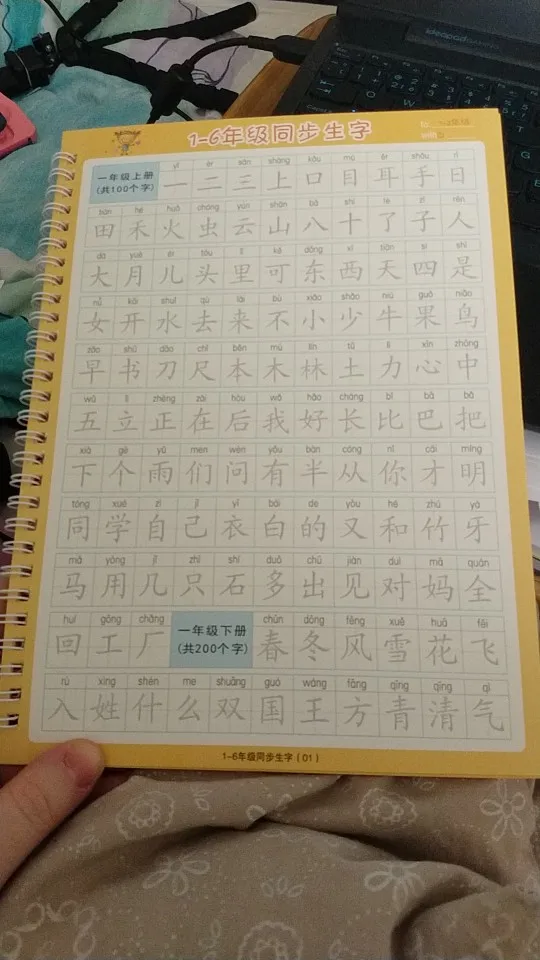 1-6年级同步生字
一年级上册
(共100个字)
yī èr sān shàng kǒu mù ěr shǒu rì
一 二 三 上 口 目 耳 手 日
tián hé huǒ chóng yún shān bā shí le zǐ rén
田 禾 火 虫 云 山 八 十 了 子 人
dà yuè ér tóu lǐ kě dōng xī tiān sì shì
大 月 儿 头 里 可 东 西 天 四 是
nǚ kāi shuǐ qù lái bù xiǎo shǎo niú guǒ niǎo
女 开 水 去 来 不 小 少 牛 果 鸟
zǎo shū dāo chǐ běn mù lín tǔ lì xīn zhōng
早 书 刀 尺 本 木 林 土 力 心 中
wǔ lì zhèng zài hòu wǒ hǎo cháng bǐ bā bǎ
五 立 正 在 后 我 好 长 比 巴 把
xià gè yǔ men wèn yǒu bàn cóng nǐ cái míng
下 个 雨 们 问 有 半 从 你 才 明
tóng xué zì jǐ yī bái de yòu hé zhú yá
同 学 自 己 衣 白 的 又 和 竹 牙
mǎ yòng jǐ zhī shí duō chū jiàn duì mā quán
马 用 几 只 石 多 出 见 对 妈 全
huí gōng chǎng
回 工 厂
一年级下册
(共200个字)
chūn dōng fēng xuě huā fēi
春 冬 风 雪 花 飞
rù xìng shén me shuāng guó wáng fāng qīng qīng qì
入 姓 什 么 双 国 王 方 青 清 气
1-6年级同步生字(01)